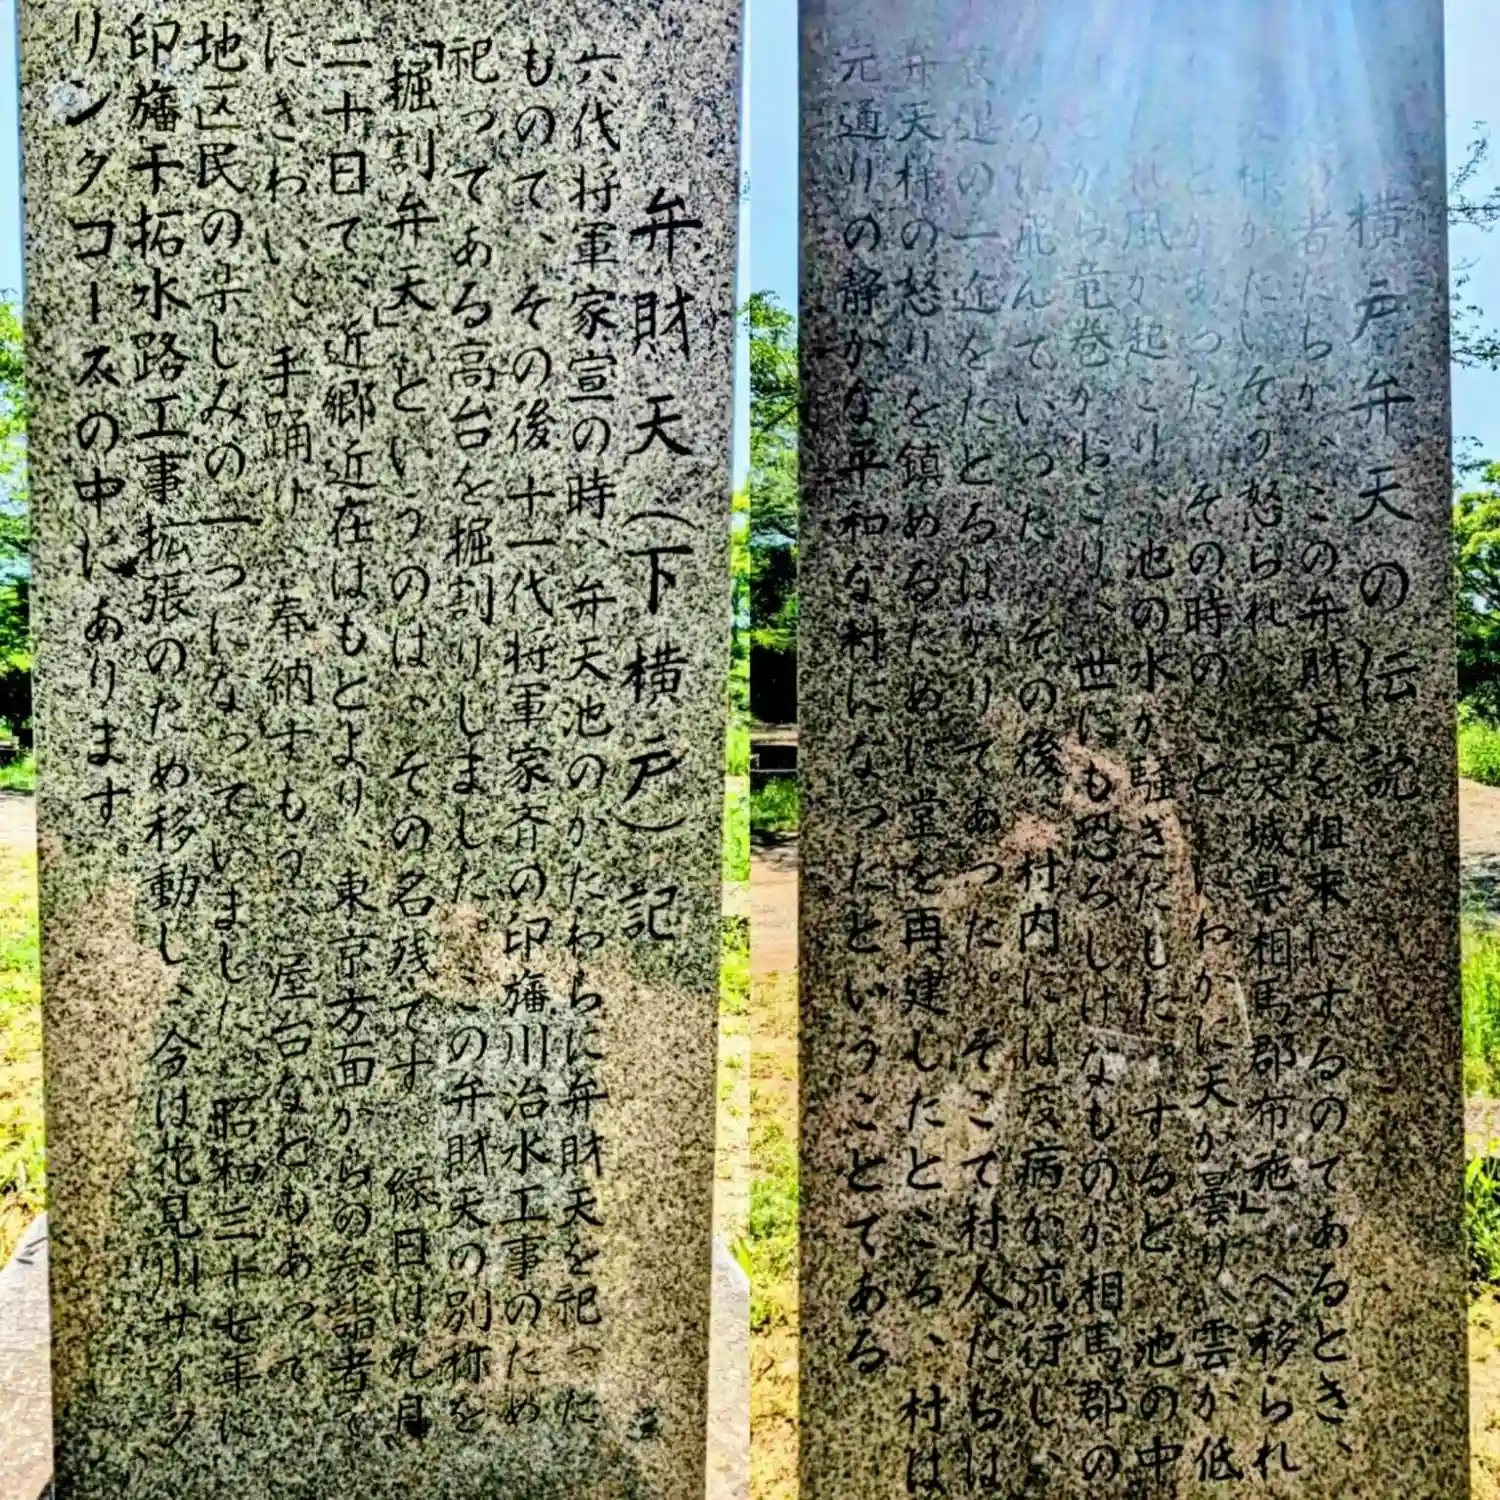 弁財天(下横戸)記
六代将軍家宣の時、弁天池のかたわらに弁財天を祀った
もので、その後十一代将軍家斉の印旛川治水工事のため
祀ってある高台を掘割りしました。この弁財天の別称を
「掘割弁天」というのは、その名残です。縁日は九月
二十日で、近郷近在はもとより、東京方面からの参詣者で
にぎわい、手踊り、奉納すもう、屋台などもあって、
地区民の楽しみの一つになっていました。昭和三十七年に
印旛干拓水路工事拡張のため移動し、今は花見川サイク
リングコースの中にあります
横戸弁天の伝説
者たちが、この弁財天を粗末にするのであるとき、
天様がたいそう怒られ、「茨城県相馬郡布施」へ移られ
ことがあった。その時のこと、にわかに天が曇り、雲が低
れ風が起こり、池の水が騒ぎだした。すると、池の中
から竜巻がおこり、世にも恐ろしげなものが相馬郡の
うに飛んでいった。その後、村内には疫病が流行し、
の一途をたどるばかりであった。そこで村人たちは
弁天様の怒りを鎮めるために堂を再建したところ、村は
元通りの静かな平和な村になったということである